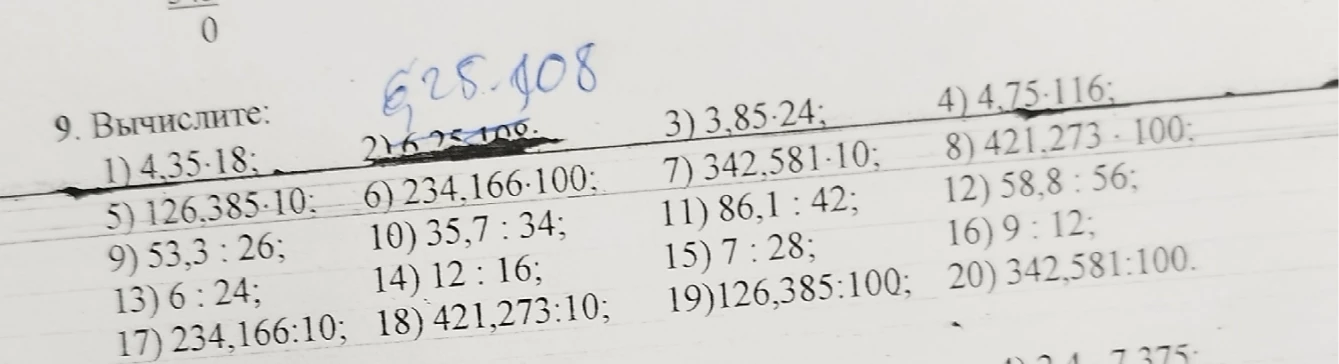 0
6,25·108
9. Вычислите:
1) 4,35·18; 2) 6,25·108; 3) 3,85·24; 4) 4,75·116;
5) 126,385·10; 6) 234,166·100; 7) 342,581·10; 8) 421,273 · 100;
9) 53,3 : 26; 10) 35,7 : 34; 11) 86,1 : 42; 12) 58,8 : 56;
13) 6 : 24; 14) 12 : 16; 15) 7 : 28; 16) 9 : 12;
17) 234,166:10; 18) 421,273:10; 19)126,385:100; 20) 342,581:100.
7,375;